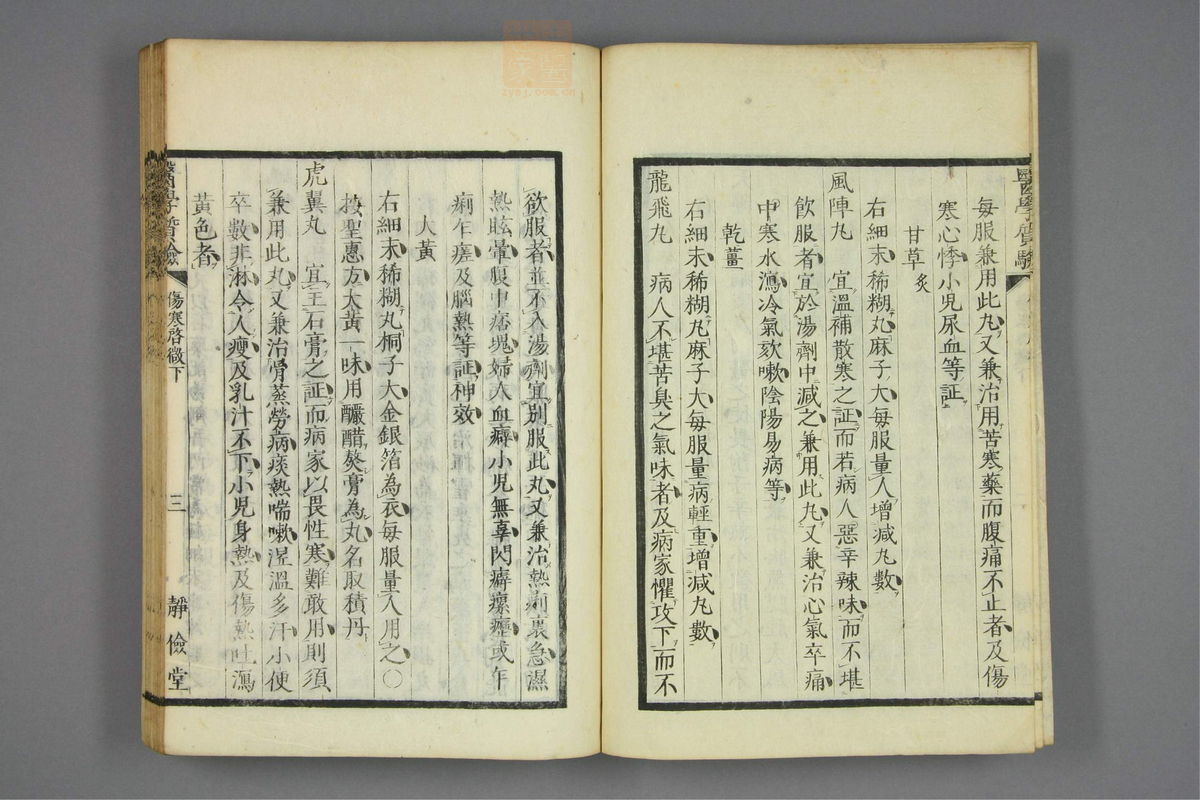 每服兼用此丸又兼治用苦寒藥而腹痛不止者及傷
寒心悸小児尿血等証
甘草炙
右細末稀糊丸麻子大每服量人增減丸數
風陣丸 宜溫補散寒之証而若病人惡辛辣味而不堪
飲服者宜於湯劑中減之兼用此丸又兼治心氣卒痛
中寒水瀉冷氣欬嗽陰陽易病等
乾薑
右細末稀糊丸麻子大每服量病輕重增減丸數
龍飛丸 病人不堪苦臭之氣味者及病家懼攻下而不
醫學質驗
欲服者並不入湯劑宜別服此丸又兼治熱痢裏急濕
熱眩暈腹中痞塊婦人血癖小児無辜閃癖瘰癧或午
痢乍瘥及腦熱等証神效
大黃
右細末稀糊丸桐子大金銀箔為衣每服量人用之○
按聖惠方大黃一味用釅醋熬膏為丸名取積丹
虎翼丸 宜主石膏之証而病家以畏性寒難敢用則須
兼用此丸又兼治骨蒸勞病痰熱喘嗽溫多汗小便
卒數非淋令人瘦及乳汁不下小児身熱及傷熱吐瀉
黃色者
醫學質驗 傷寒啓微下 三 靜儉堂
zysj.com.cn